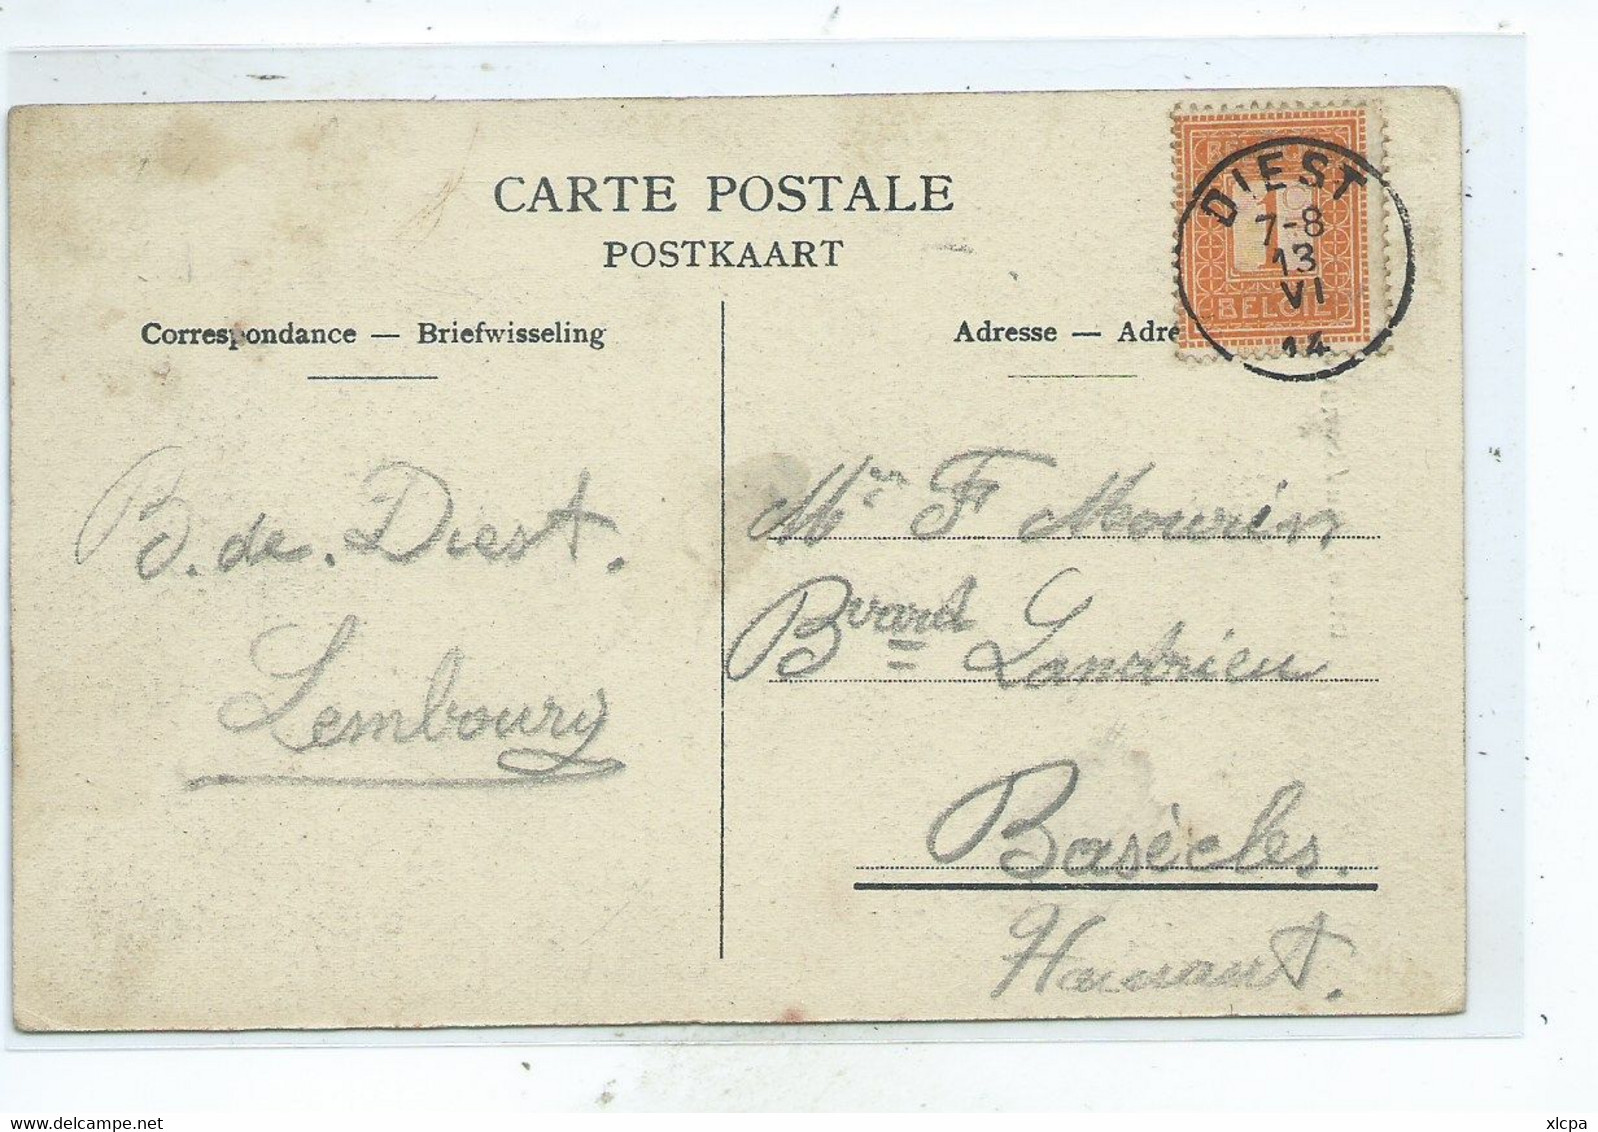 CARTE POSTALE
POSTKAART
Correspondance — Briefwisseling
Adresse — Adre
DIEST
7-8
13
VI
14
1
BELGIE
B. de. Diest.
Lemboury
Mr F Mourin
Bvard Landrieu
Basècles.
Hainaut.
xlcpa